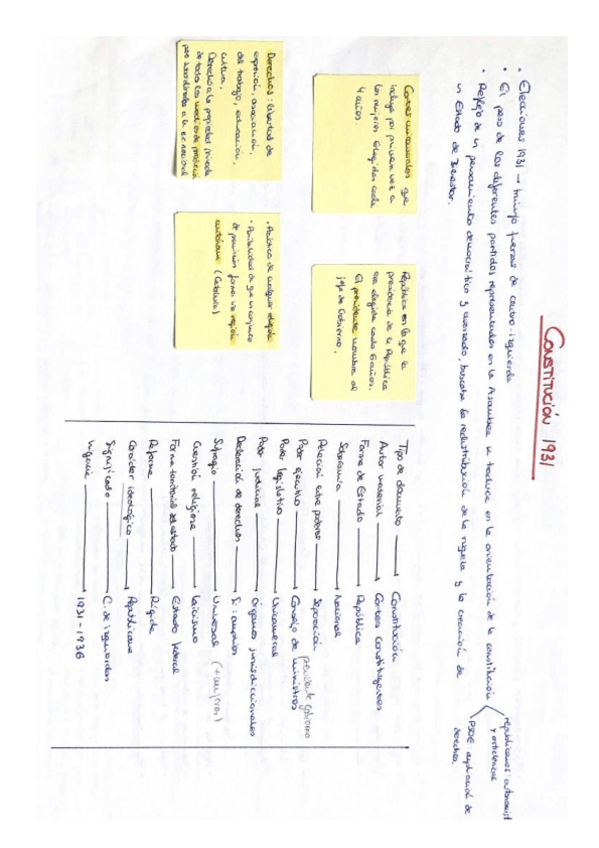 CONSTITUCIÓN 1931
• Elecciones 1931 → triunfo fuerzas de centro-izquierda
• El peso de los diferentes partidos representados en la Asamblea se traduce en la orientación de la constitución
republicanos: autonomist
y anticlerical
PSOE: ampliación de
derechos.
• Reflejo de un pensamiento democrático y avanzado, buscaba la redistribución de la riqueza y la creación de
un Estado de Bienestar.
Cortes unicamerales que
incluye por primera vez a
las mujeres. Elegidas cada
4 años.
República en la que la
presidencia de la República
era elegida cada 6 años.
El presidente nombra al
jefe de Gobierno.
Derechos: libertad de
expresión, asociación,
del trabajo, educación,
cultura.
Derecho a la propiedad privada
de todos los medios de producció
pero subordinada a la ec. nacional
• Práctica de cualquier religión
• Posibilidad de que un conjunto
de provincias forme una región
autónoma (Cataluña)
Tipo de documento → Constitución
Autor material → Cortes constituyentes
Forma de Estado → República
Soberanía → Nacional
Relación entre poderes → Separación
Poder ejecutivo → Consejo de ministros presidente gobierno
Poder legislativo → Unicameral
Poder judicial → Órganos jurisdiccionales
Declaración de derechos → Sí amplios
Sufragio → Universal (+ mujeres)
Cuestión religiosa → laicismo
Forma territorial del estado → Estado federal
Reforma → Rígida
Carácter ideológico → Republicana
Significado → C. de izquierdas
Vigencia → 1931-1936